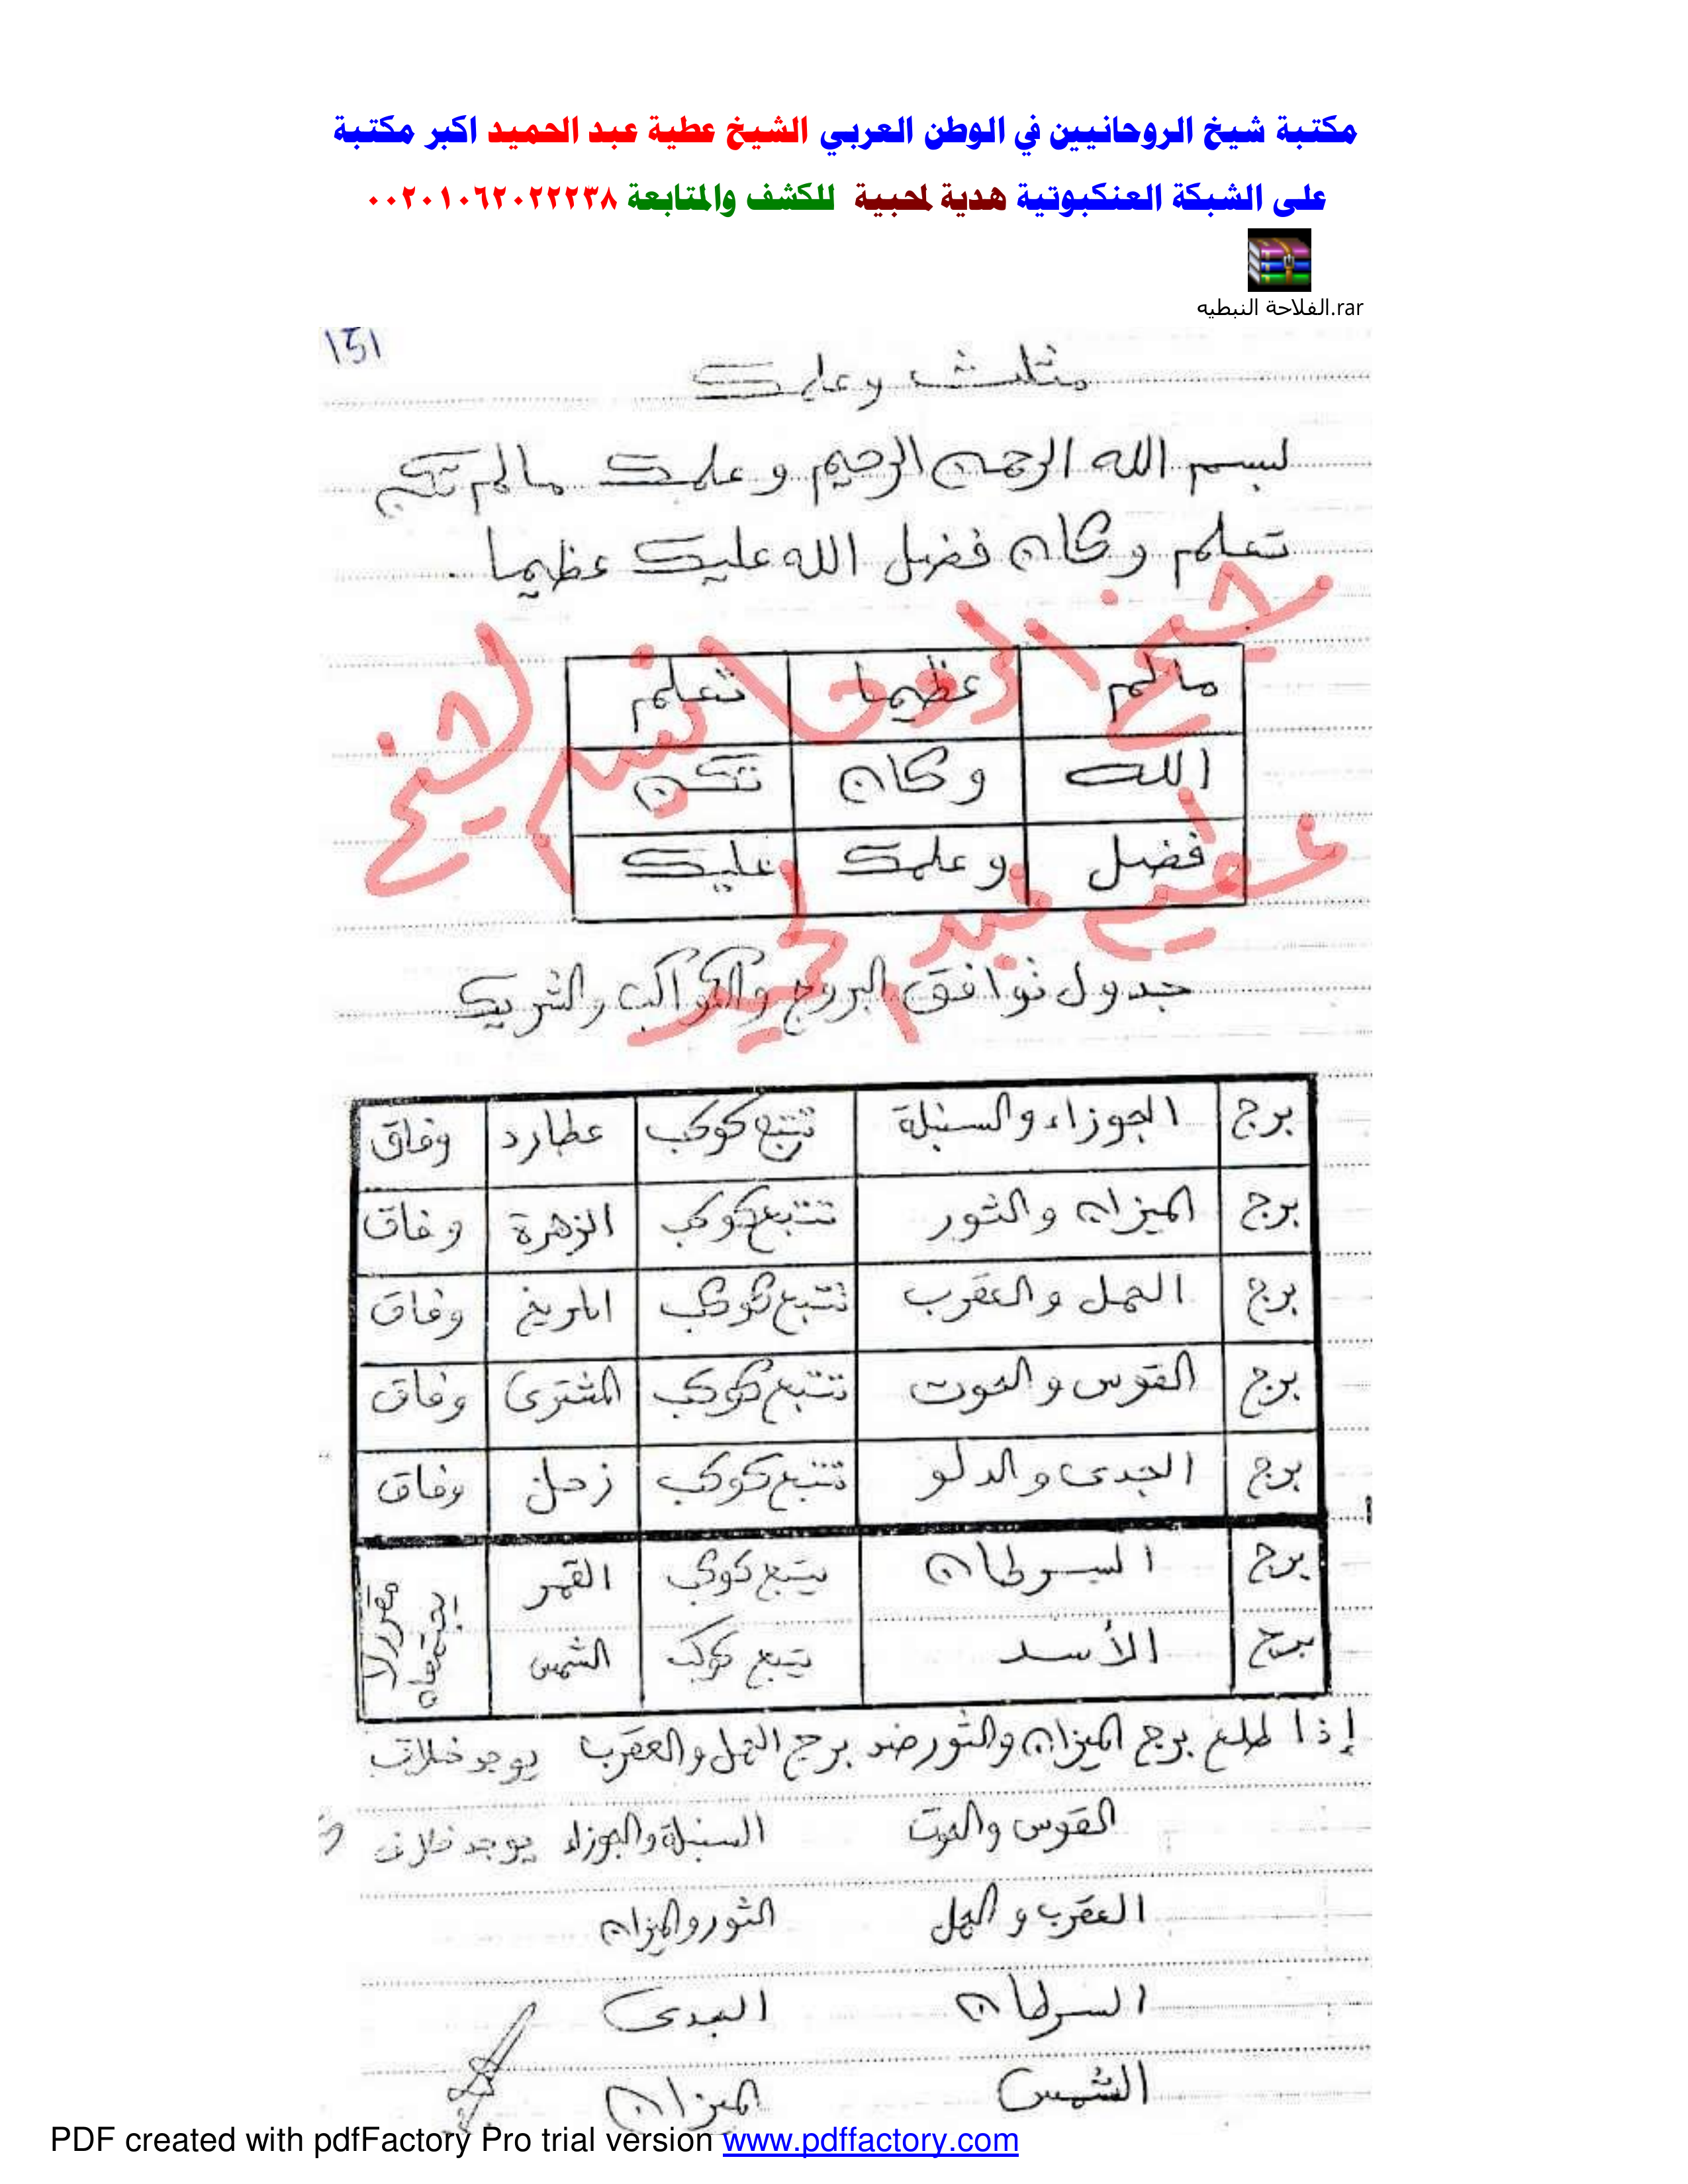 مكتبة شيخ الروحانيين في الوطن العربي الشيخ عطية عبد الحميد اكبر مكتبة
على الشبكة العنكبوتية هدية لمحبية للكشف والمتابعة ٠٠٢٠١٠٦٢٠٢٢٢٣٨
الفلاحة النبطيه.rar
151
مثلث وعلمك
بسم الله الرحمن الرحيم وعلمك مالم تكن
تعلم وكان فضل الله عليك عظيما .
مالم عظيما تعلم
الله وكان تكن
فضل وعلمك عليك
شيخ الروحانيين الشيخ
عطيه عبد الحميد
جدول توافق البروج والكواكب والشريك
برج الجوزاء والسنبلة تتبع كوكب عطارد وفاق
برج الميزان والثور تتبع كوكب الزهرة وفاق
برج الحمل والعقرب تتبع كوكب المريخ وفاق
برج القوس والحوت تتبع كوكب المشترى وفاق
برج الجدى والدلو تتبع كوكب زحل وفاق
برج السرطان يتبع كوكب القمر
برج الأسد يتبع كوكب الشمس
إذا طلع برج الميزان والثور ضد برج الحمل والعقرب يوجد خلاف
القوس والحوت السنبلة والجوزاء يوجد خلاف
العقرب والحمل الثور والميزان
السرطان الجدى
الشمس الميزان
PDF created with pdfFactory Pro trial version www.pdffactory.com